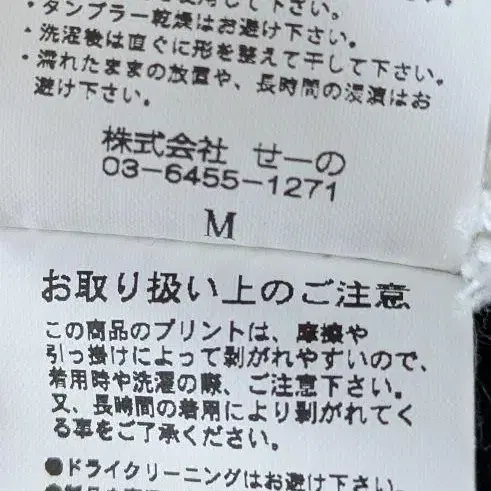 使用して下さい。
・タンブラー乾燥はお避け下さい。
・洗濯後は直ぐに形を整えて干して下さい。
・濡れたままの放置や、長時間の浸漬はお
避け下さい。
株式会社 せーの
03-6455-1271
M
お取り扱い上のご注意
この商品のプリントは、摩擦や
引っ掛けによって剥がれやすいので、
着用時や洗濯の際、ご注意下さい。
又、長時間の着用により剥がれてく
る事をご了承ください。
●ドライクリーニングはお避け下さい。